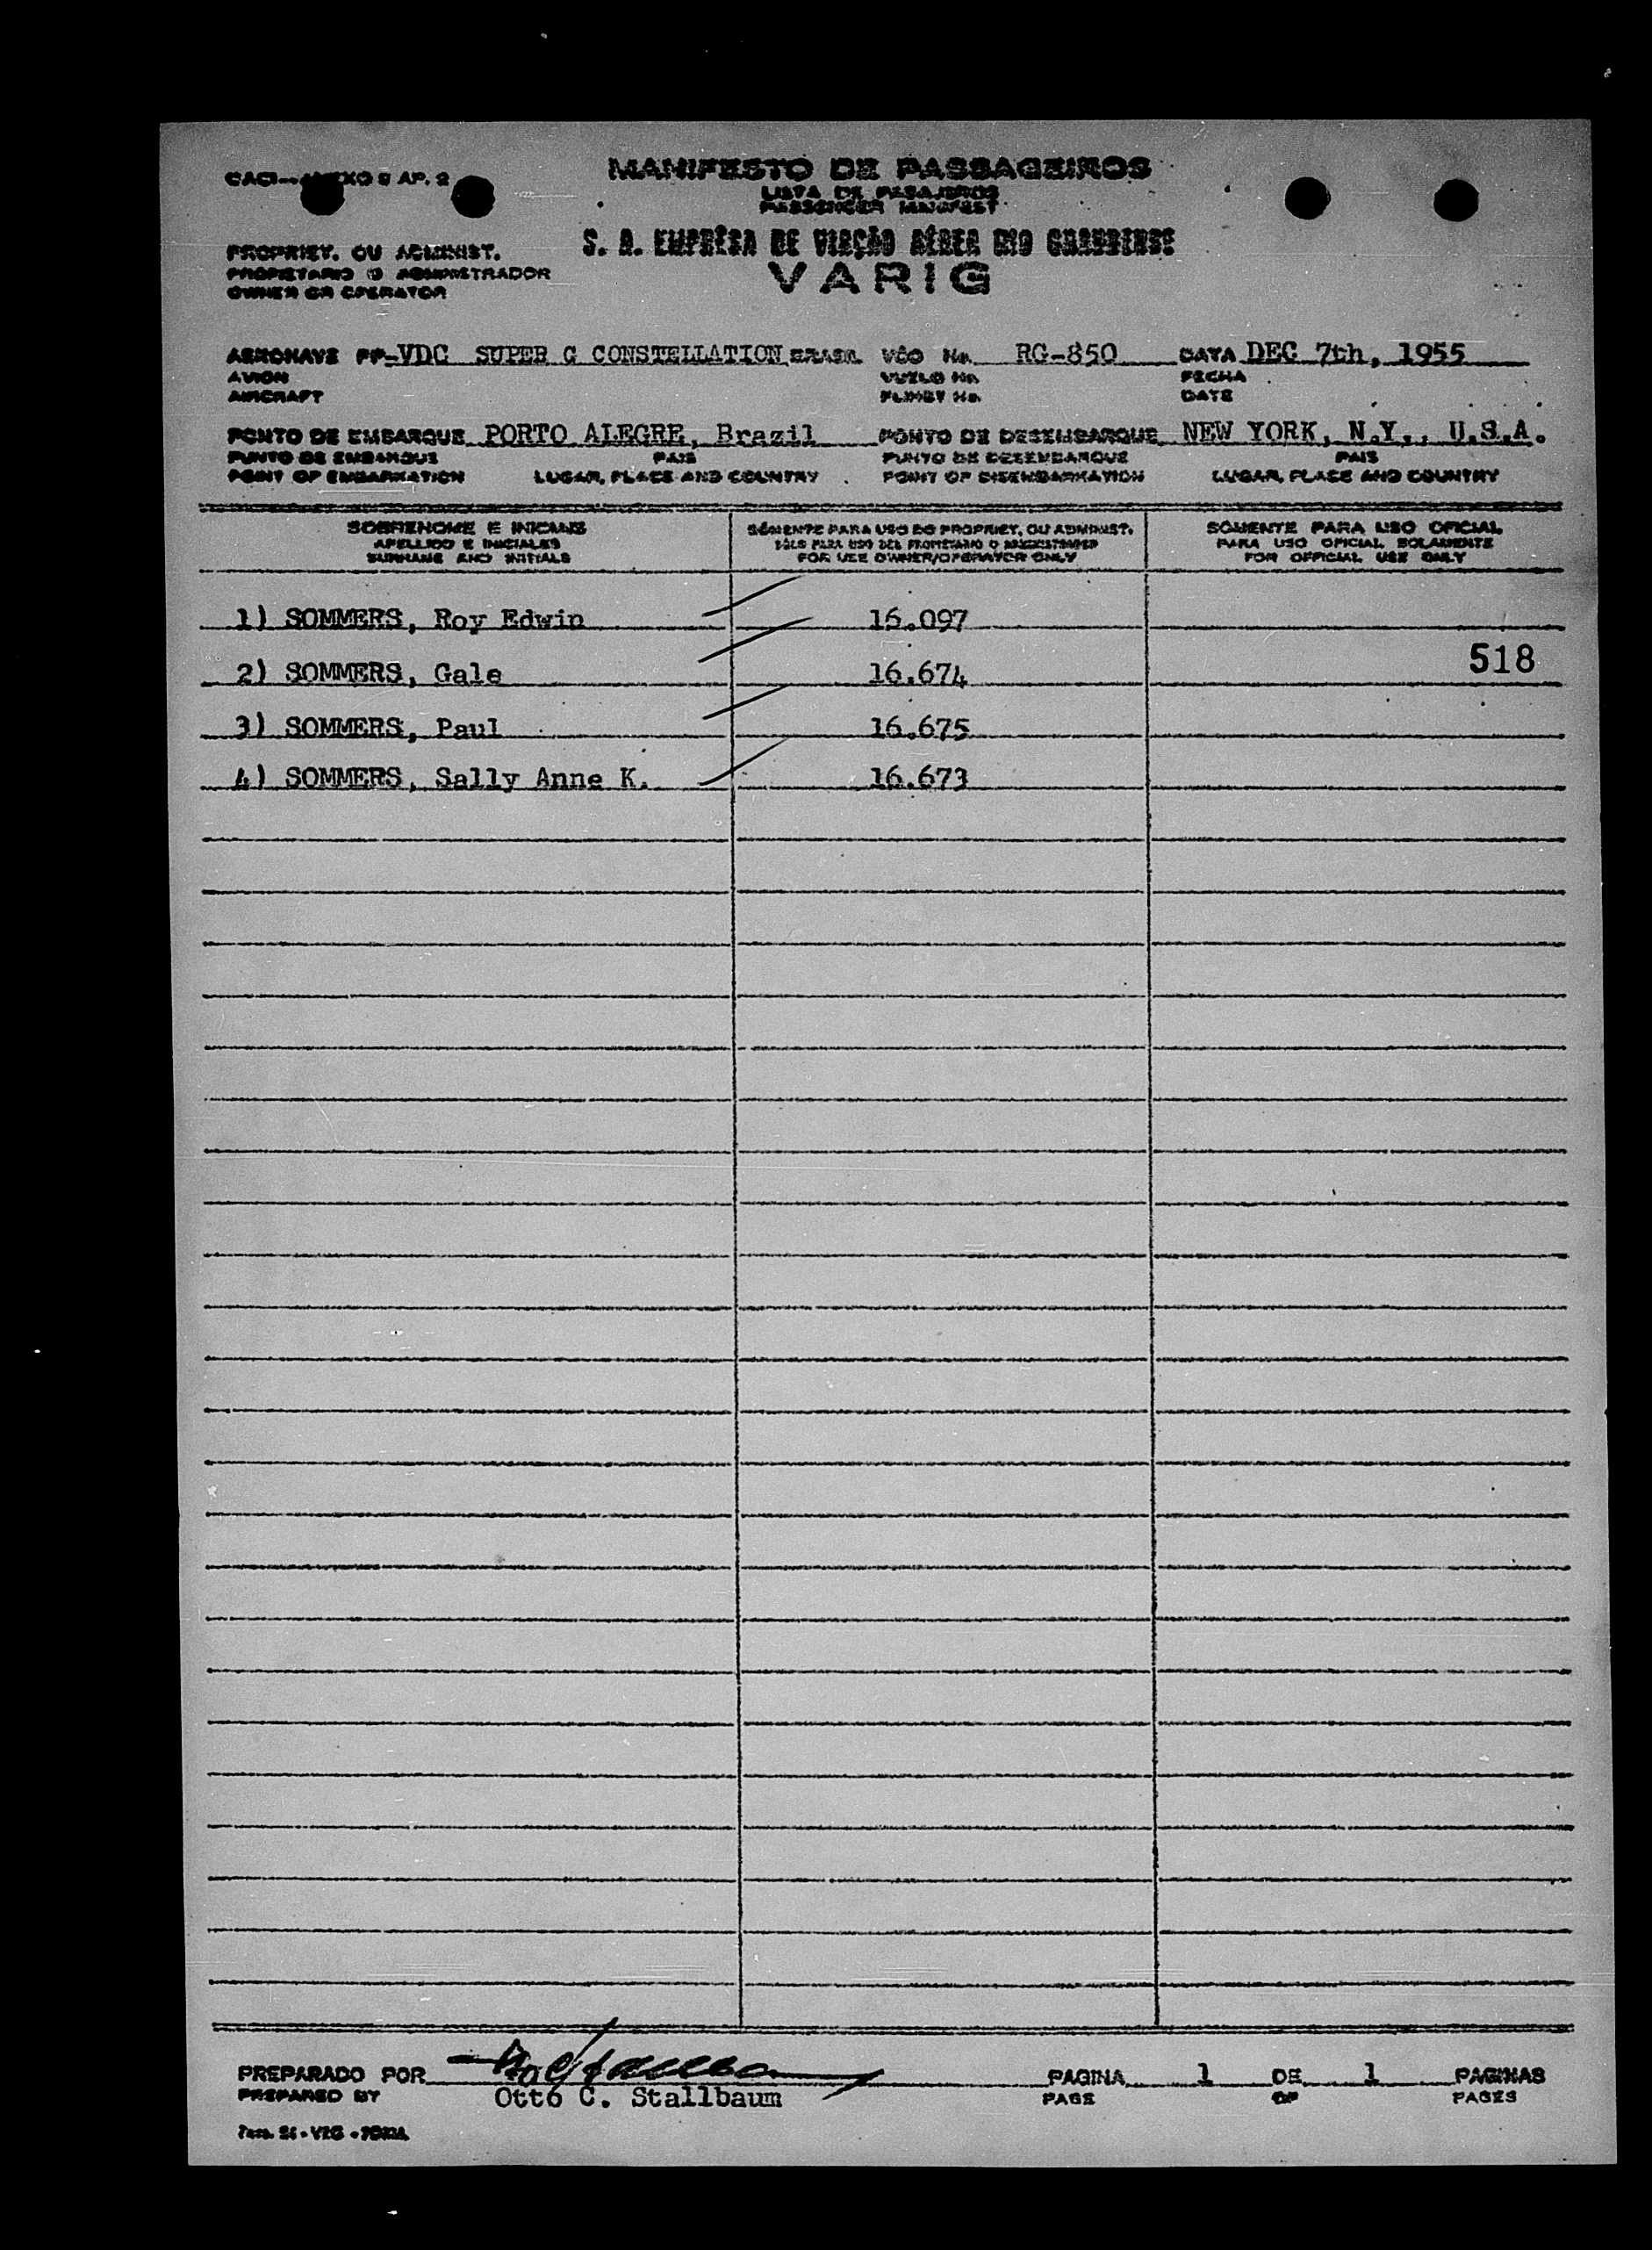 CACI—ANEXO 9 AP. 2
MANIFESTO DE PASSAGEIROS
LISTA DE PASAJEROS
PASSENGER MANIFEST
PROPRIET. OU ADMINIST.
PROPIETARIO O ADMINISTRADOR
OWNER OR OPERATOR
S. A. EMPRÊSA DE VIAÇÃO AÉREA RIO GRANDENSE
VARIG
AERONAVE PP-VDC SUPER G CONSTELLATION BRASIL VÔO No. RG-850 DATA DEC 7th, 1955
AVION VUELO No. FECHA
AIRCRAFT FLIGHT No. DATE
PONTO DE EMBARQUE PORTO ALEGRE, Brazil PONTO DE DESEMBARQUE NEW YORK, N.Y., U.S.A.
PUNTO DE EMBARQUE PAIS PUNTO DE DESEMBARQUE PAIS
POINT OF EMBARKATION LUGAR, PLACE AND COUNTRY POINT OF DISEMBARKATION LUGAR, PLACE AND COUNTRY
SOBRENOME E INICIAIS SÓMENTE PARA USO DO PROPRIET. OU ADMINIST. SOMENTE PARA USO OFICIAL
APELLIDO E INICIALES SÓLO PARA USO DEL PROPIETARIO O ADMINISTRADOR PARA USO OFICIAL SOLAMENTE
SURNAME AND INITIALS FOR USE OWNER/OPERATOR ONLY FOR OFFICIAL USE ONLY
1) SOMMERS, Roy Edwin 16.097
518
2) SOMMERS, Gale 16.674
3) SOMMERS, Paul 16.675
4) SOMMERS, Sally Anne K. 16.673
PREPARADO POR PAGINA 1 DE 1 PAGINAS
PREPARED BY Otto C. Stallbaum PAGE OF PAGES